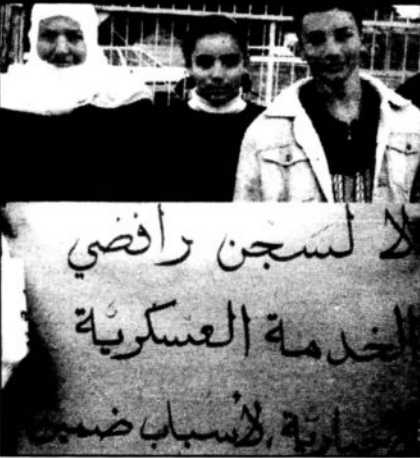 لا لسجن رافضي
الخدمة العسكرية
لأسباب